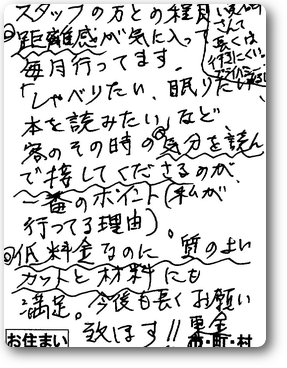 スタッフの方との程良い
距離感が気に入って
毎月行ってます。
「しゃべりたい、眠りたい、
本を読みたい」など、
客のその時の気分を読ん
で接してくださるのが、
一番のポイント(私が
行ってる理由)。
低料金なのに 質のよい
カットと材料にも
満足。今後も長くお願い
致します!!
お住まい
市・町・村